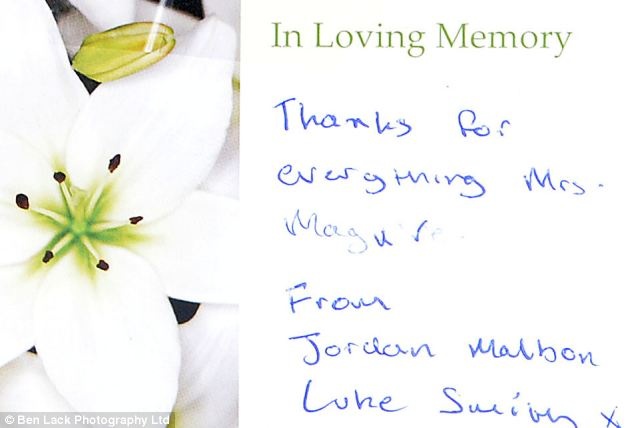 In Loving Memory
Thanks for
everything Mrs.
Maguire.
From
Jordan Malbon
Luke x
© Ben Lack Photography Ltd